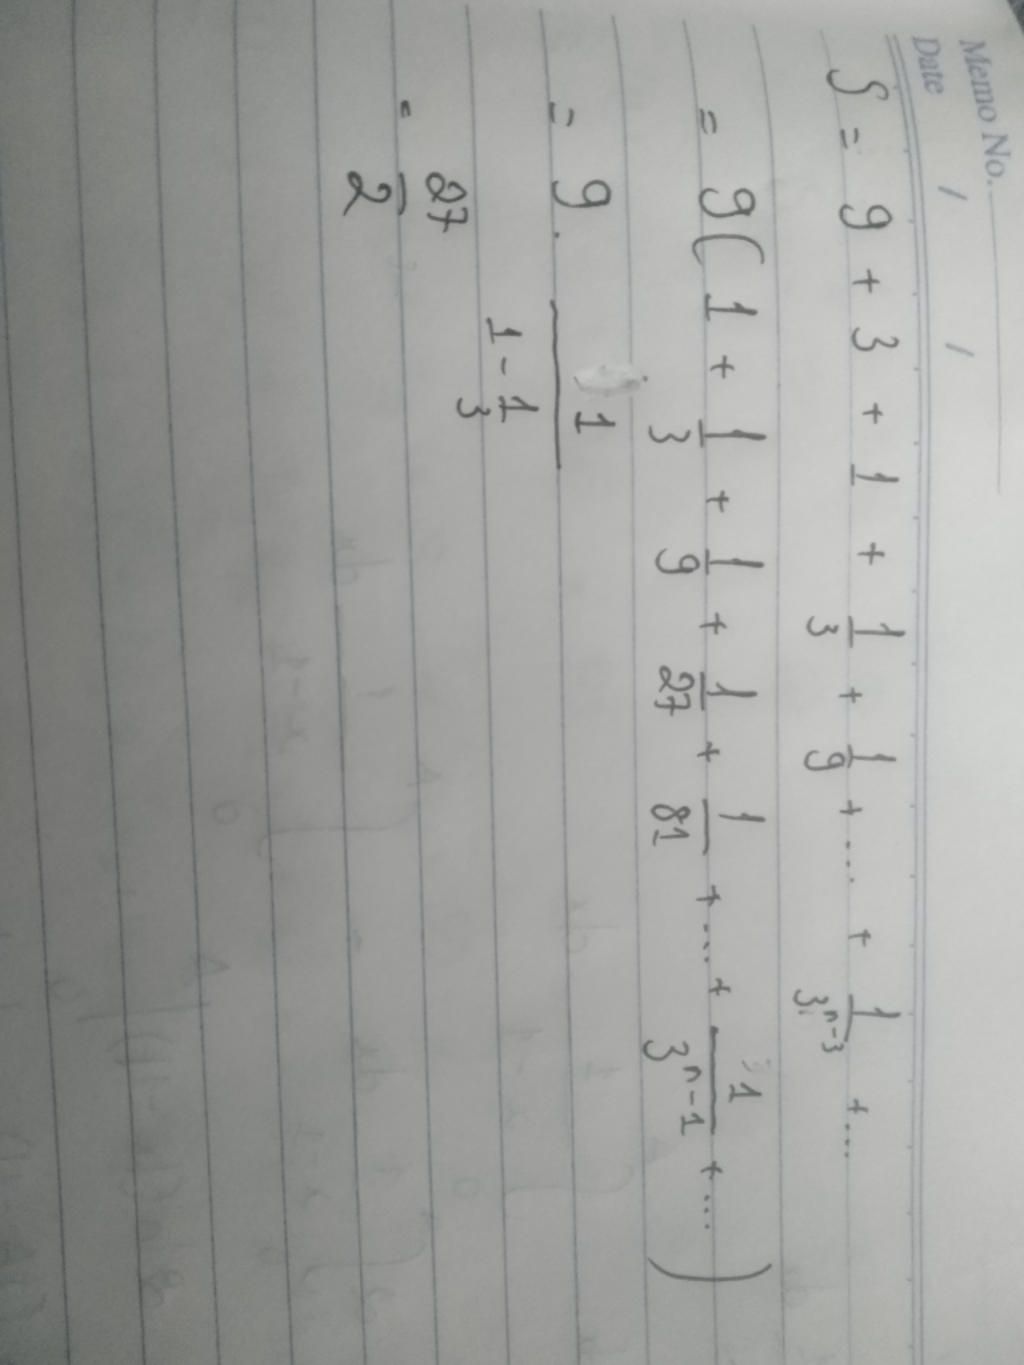 Memo No.
Date / /
S = 9 + 3 + 1 + 1/3 + 1/9 + ... + 1/3^(n-3) + ...
= 9(1 + 1/3 + 1/9 + 1/27 + 1/81 + ... + 1/3^(n-1) + ...)
= 9 . 1/(1 - 1/3)
= 27/2